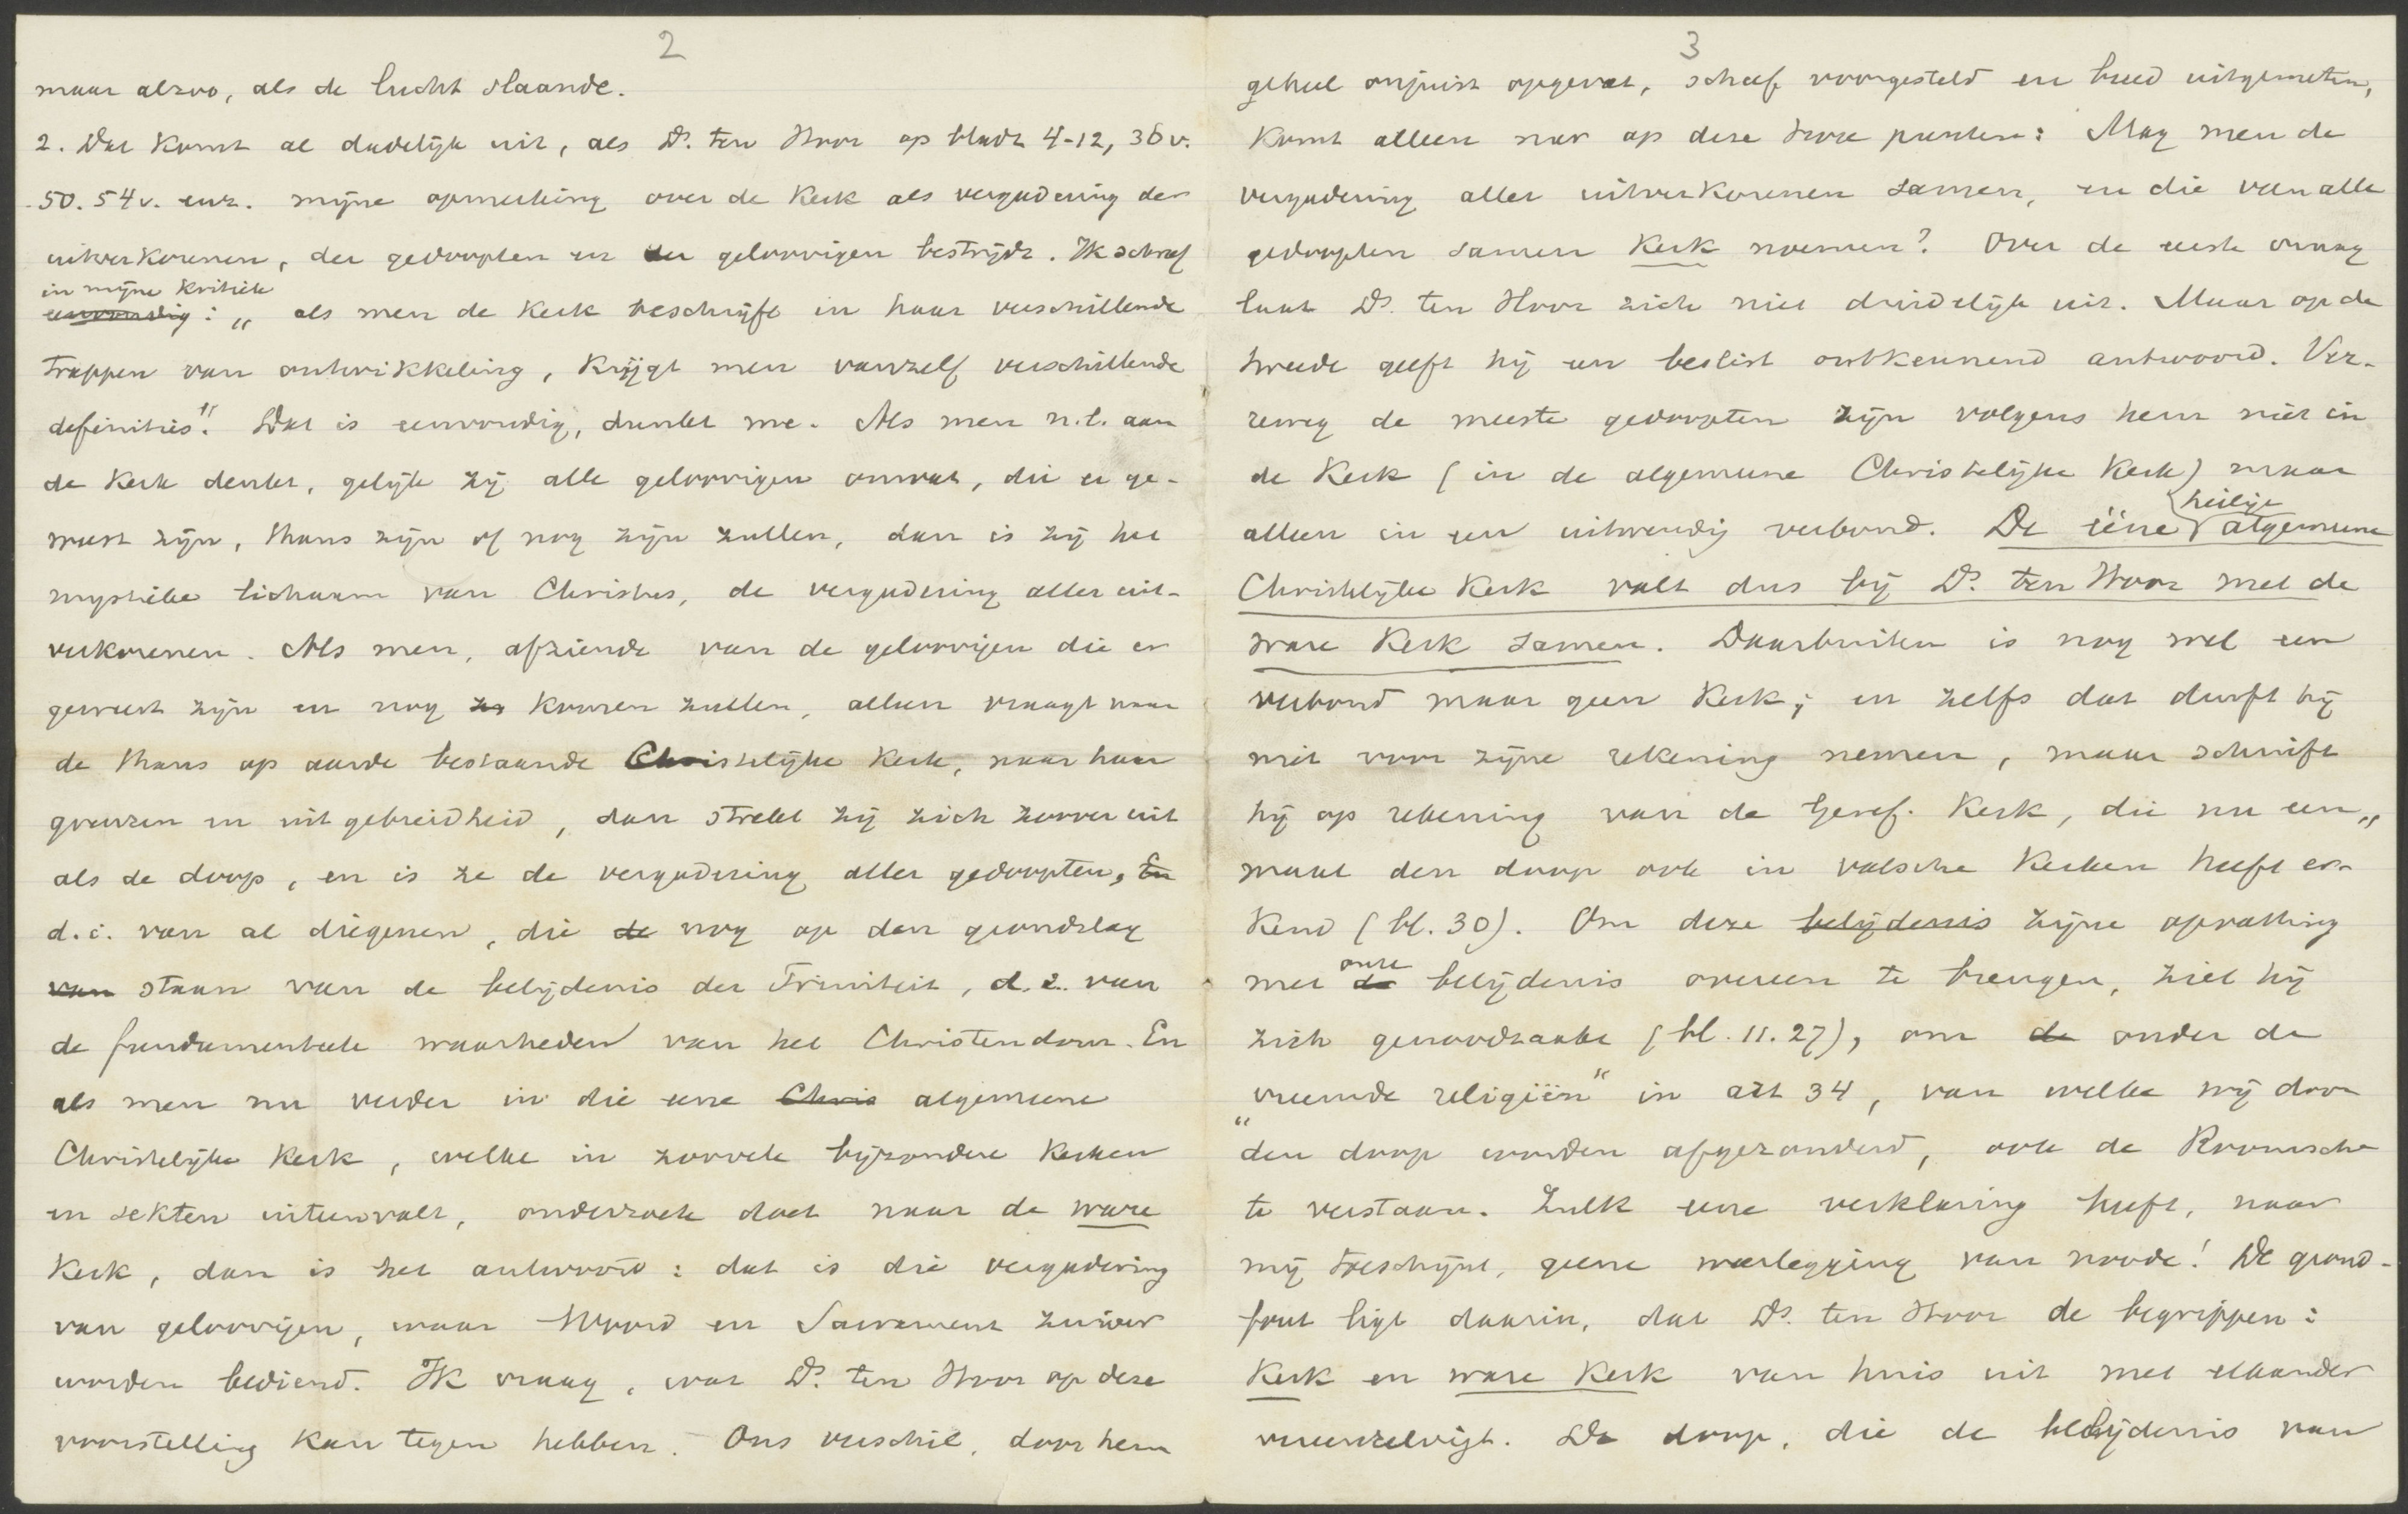 2
maar alzoo, als de lucht slaande.
2. Dat komt al dadelijk uit, als Ds. ten Hoor op bladz 4-12, 36 v.
50. 54 v. enz. mijne opmerking over de Kerk als vergadering der
uitverkorenen, der gedoopten en der geloovigen bestrijdt. Ik schreef
in mijne kritiek
eenvoudig: „als men de Kerk beschrijft in haar verschillende
trappen van ontwikkeling, krijgt men vanzelf verschillende
definities". Dat is eenvoudig, dunkt me. Als men n.l. aan
de Kerk denkt, gelijk zij alle geloovigen omvat, die er ge-
weest zijn, thans zijn of nog zijn zullen, dan is zij het
mystieke lichaam van Christus, de vergadering aller uit-
verkorenen. Als men, afziende van de geloovigen die er
geweest zijn en nog zu komen zullen, alleen vraagt naar
de thans op aarde bestaande Christelijke Kerk, naar haar
grenzen en uitgebreidheid, dan strekt zij zich zoover uit
als de doop, en is ze de vergadering aller gedoopten, En
d.i. van al diegenen, die de nog op den grondslag
van staan van de belijdenis der Triniteit, d.i. van
de fundamenteele waarheden van het Christendom. En
als men nu verder in die eene Chris algemeene
Christelijke Kerk, welke in zoovele bijzondere Kerken
en sekten uiteenvalt, onderzoek doet naar de ware
Kerk, dan is het antwoord: dat is die vergadering
van geloovigen, waar Woord en Sacrament zuiver
worden bediend. Ik vraag, wat Ds. ten Hoor op deze
voorstelling kan tegen hebben. Ons verschil, door hem
3
geheel onjuist opgevat, scheef voorgesteld en breed uitgemeten,
komt alleen neer op deze twee punten: Mag men de
vergadering aller uitverkorenen samen, en die van alle
gedoopten samen Kerk noemen? Over de eerste vraag
laat Ds. ten Hoor zich niet duidelijk uit. Maar op de
tweede geeft hij een beslist ontkennend antwoord. Ver-
reweg de meeste gedoopten zijn volgens hem niet in
de Kerk (in de algemeene Christelijke Kerk) maar
heilige
alleen in een uitwendig verbond. De ééne algemeene
Christelijke Kerk valt dus bij Ds. ten Hoor met de
ware Kerk samen. Daarbuiten is nog wel een
verbond maar geen Kerk; en zelfs dat durft hij
niet voor zijne rekening nemen, maar schuift
hij op rekening van de Geref. Kerk, die nu een„
maal den doop ook in valsche Kerken heeft er-
kend (bl. 30). Om deze belijdenis zijne opvatting
onze
met de belijdenis overeen te brengen, ziet hij
zich genoodzaakt (bl. 11. 27), om de onder de
„vreemde religiën" in art 34, van welke wij door
den doop worden afgezonderd, ook de Roomsche
te verstaan. Zulk eene verklaring heeft, naar
mij toeschijnt, geene weerlegging van noode! De grond-
fout ligt daarin, dat Ds. ten Hoor de begrippen:
Kerk en ware Kerk van huis uit met elkander
vereenzelvigt. De doop, die de belijdenis van